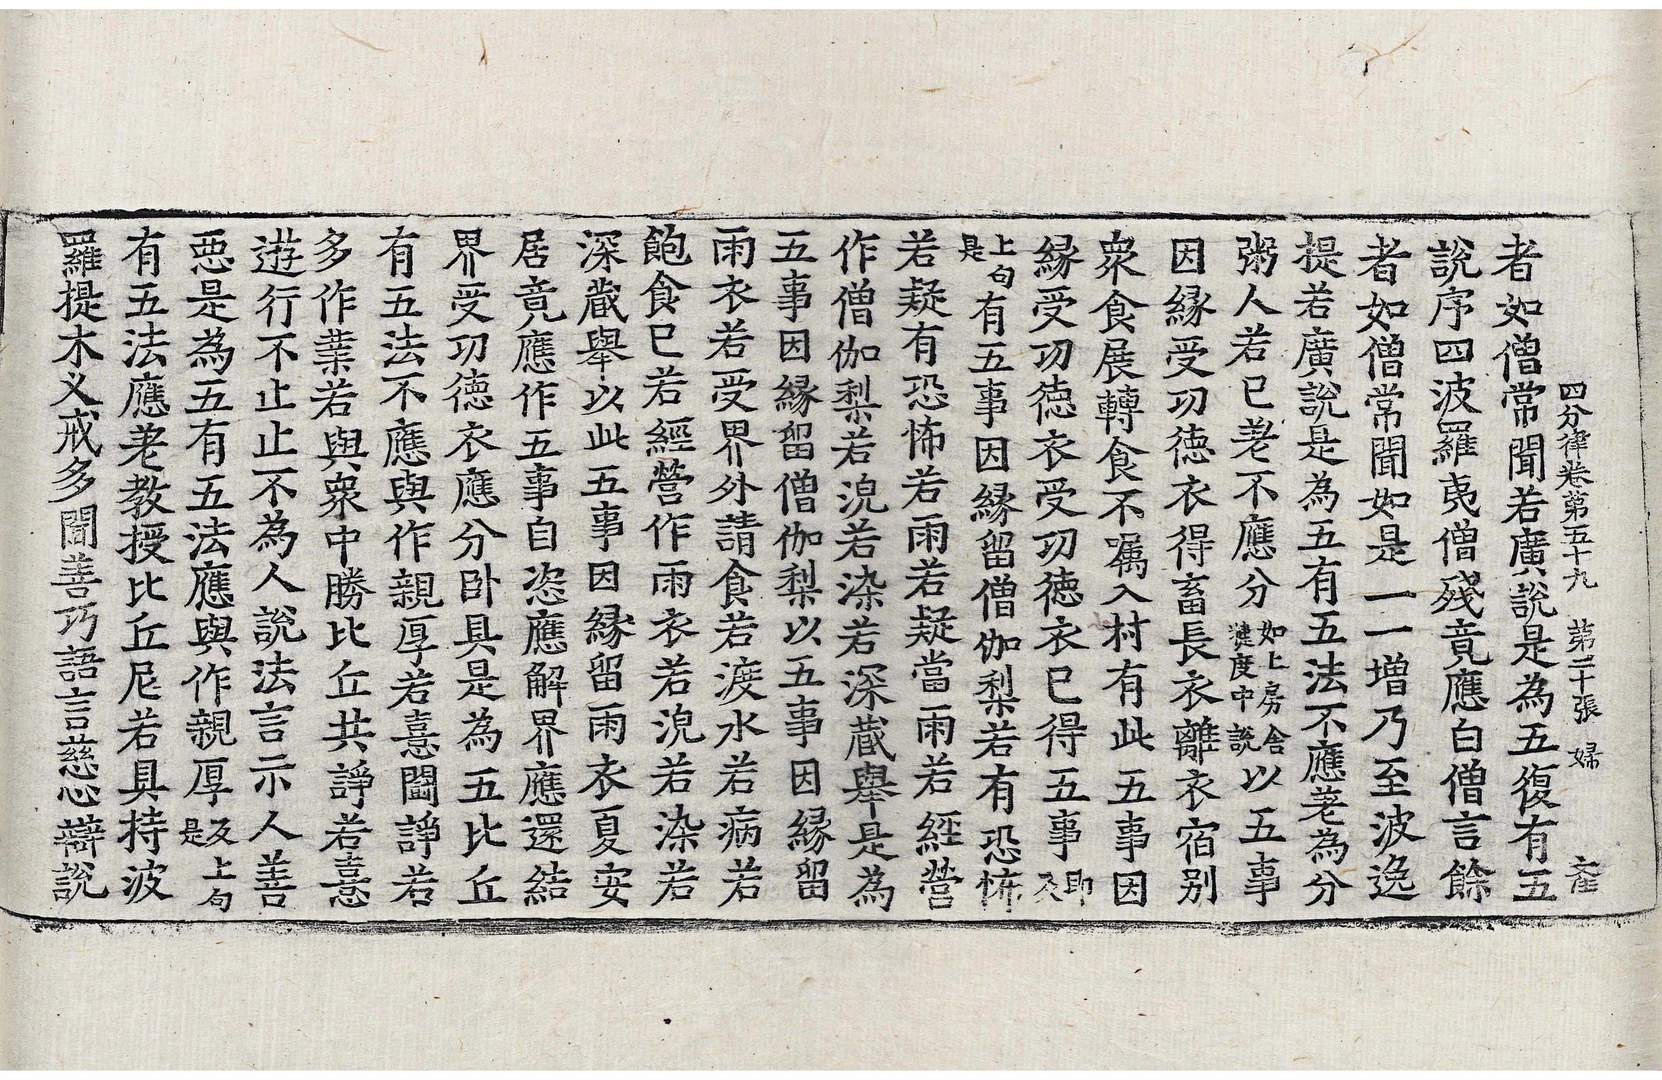 四分律卷第五十九 第二十張 婦
者如僧常聞若廣說是為五復有五
說序四波羅夷僧殘竟應白僧言餘
者如僧常聞如是一一增乃至波逸
提若廣說是為五有五法不應差為分
粥人若已差不應分如上房舍揵度中說以五事
因緣受功德衣得畜長衣離衣宿別
眾食展轉食不囑入村有此五事因
緣受功德衣受功德衣已得五事即及
上句是有五事因緣留僧伽梨若有恐怖
若疑有恐怖若雨若疑當雨若經營
作僧伽梨若浣若染若深藏舉是為
五事因緣留僧伽梨以五事因緣留
雨衣若受界外請食若渡水若病若
飽食已若經營作雨衣若浣若染若
深藏舉以此五事因緣留雨衣夏安
居竟應作五事自恣應解界應還結
界受功德衣應分臥具是為五比丘
有五法不應與作親厚若憙鬪諍若
多作業若與眾中勝比丘共諍若憙
遊行不止止不為人說法言示人善
惡是為五有五法應與作親厚反上句是
有五法應差教授比丘尼若具持波
羅提木叉戒多聞善巧語言慈心辯說